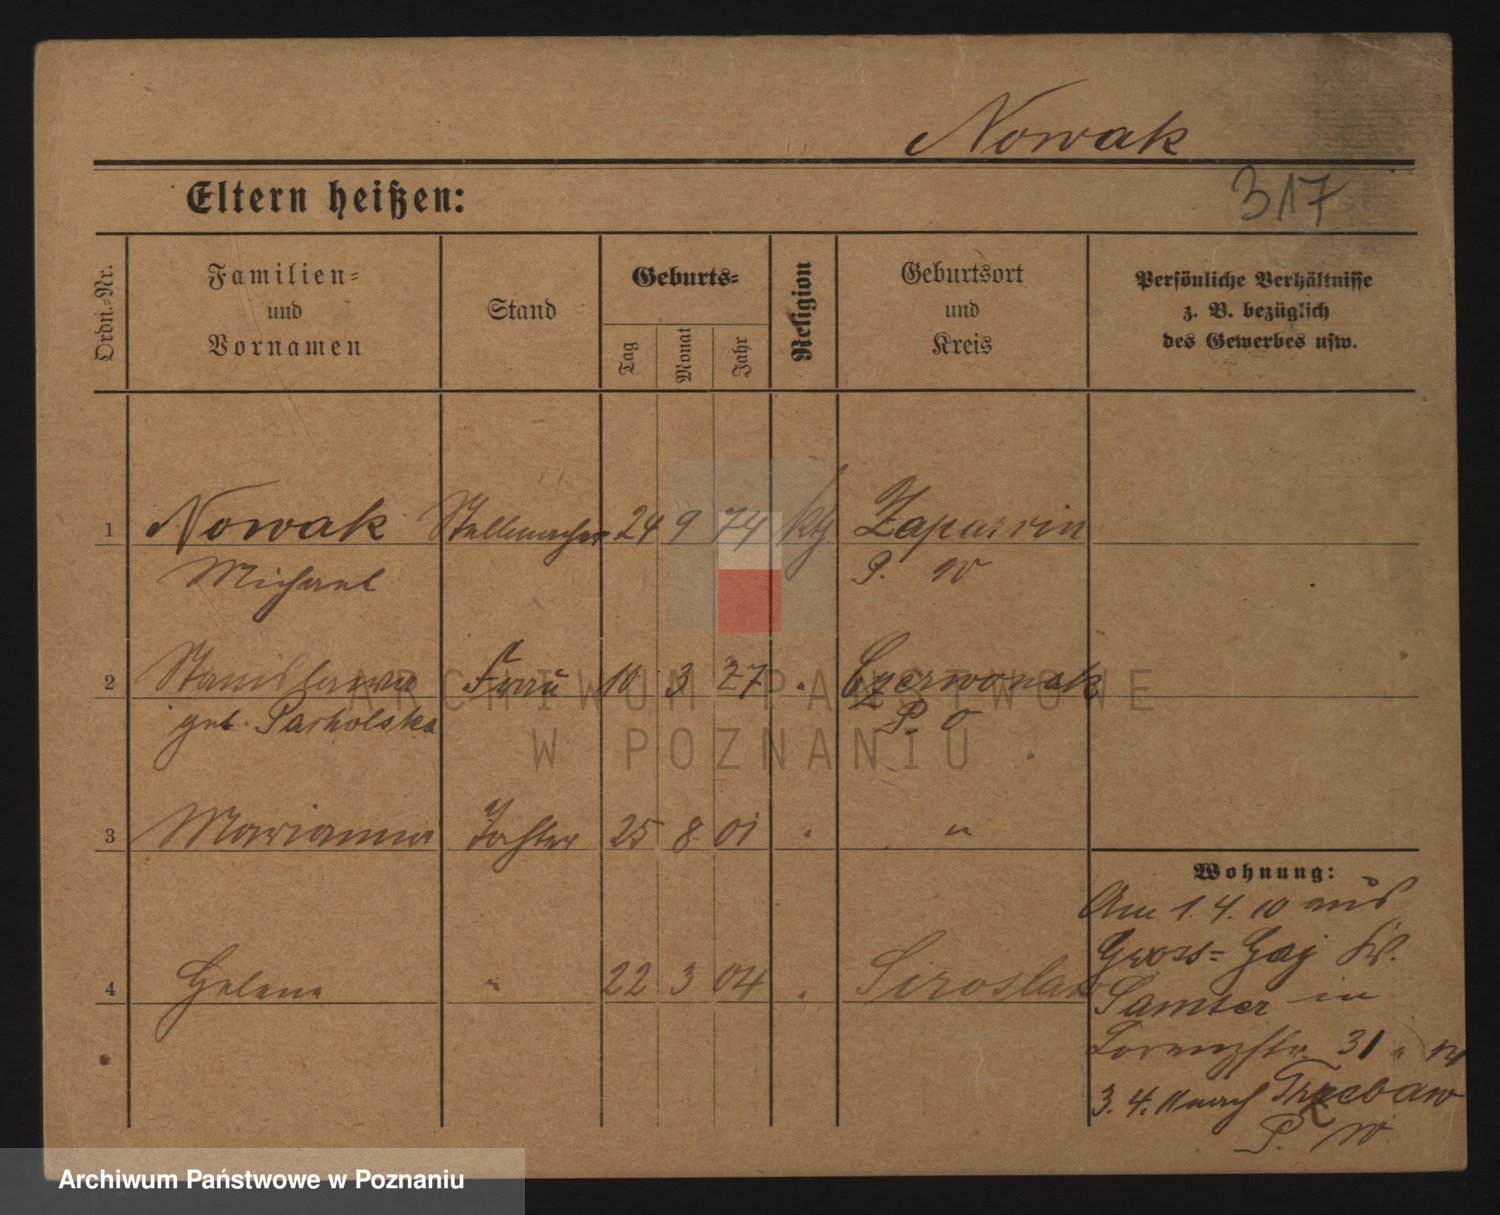 Nowak
317
Eltern heißen:
Ordn.-Nr.
Familien-
und
Vornamen
Stand
Geburts-
Tag
Monat
Jahr
Religion
Geburtsort
und
Kreis
Persönliche Verhältnisse
z. B. bezüglich
des Gewerbes usw.
1 Nowak Stellmacher 24 9 74 kth
Michael P. W
2 Stanislawa Frau 10 3 77 Czerwonak
geb. P. O
3 Marianna Tochter 25 8 01 "
Wohnung:
Am 1.4.10 aus
Gross-Gaj Kr.
4 Helene " 22 3 04
Samter in
Lorenzstr. 31
3.4.11 nach Trzebaw
P. W.
ARCHIWUM PAŃSTWOWE
W POZNANIU
Archiwum Państwowe w Poznaniu